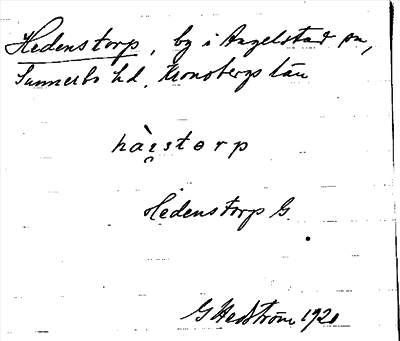 Hedenstorp, by i Angelstad sn,
Sunnerbo hd, Kronobergs län
hàɛstorp
Hedenstorp G.
G Hedström 1920